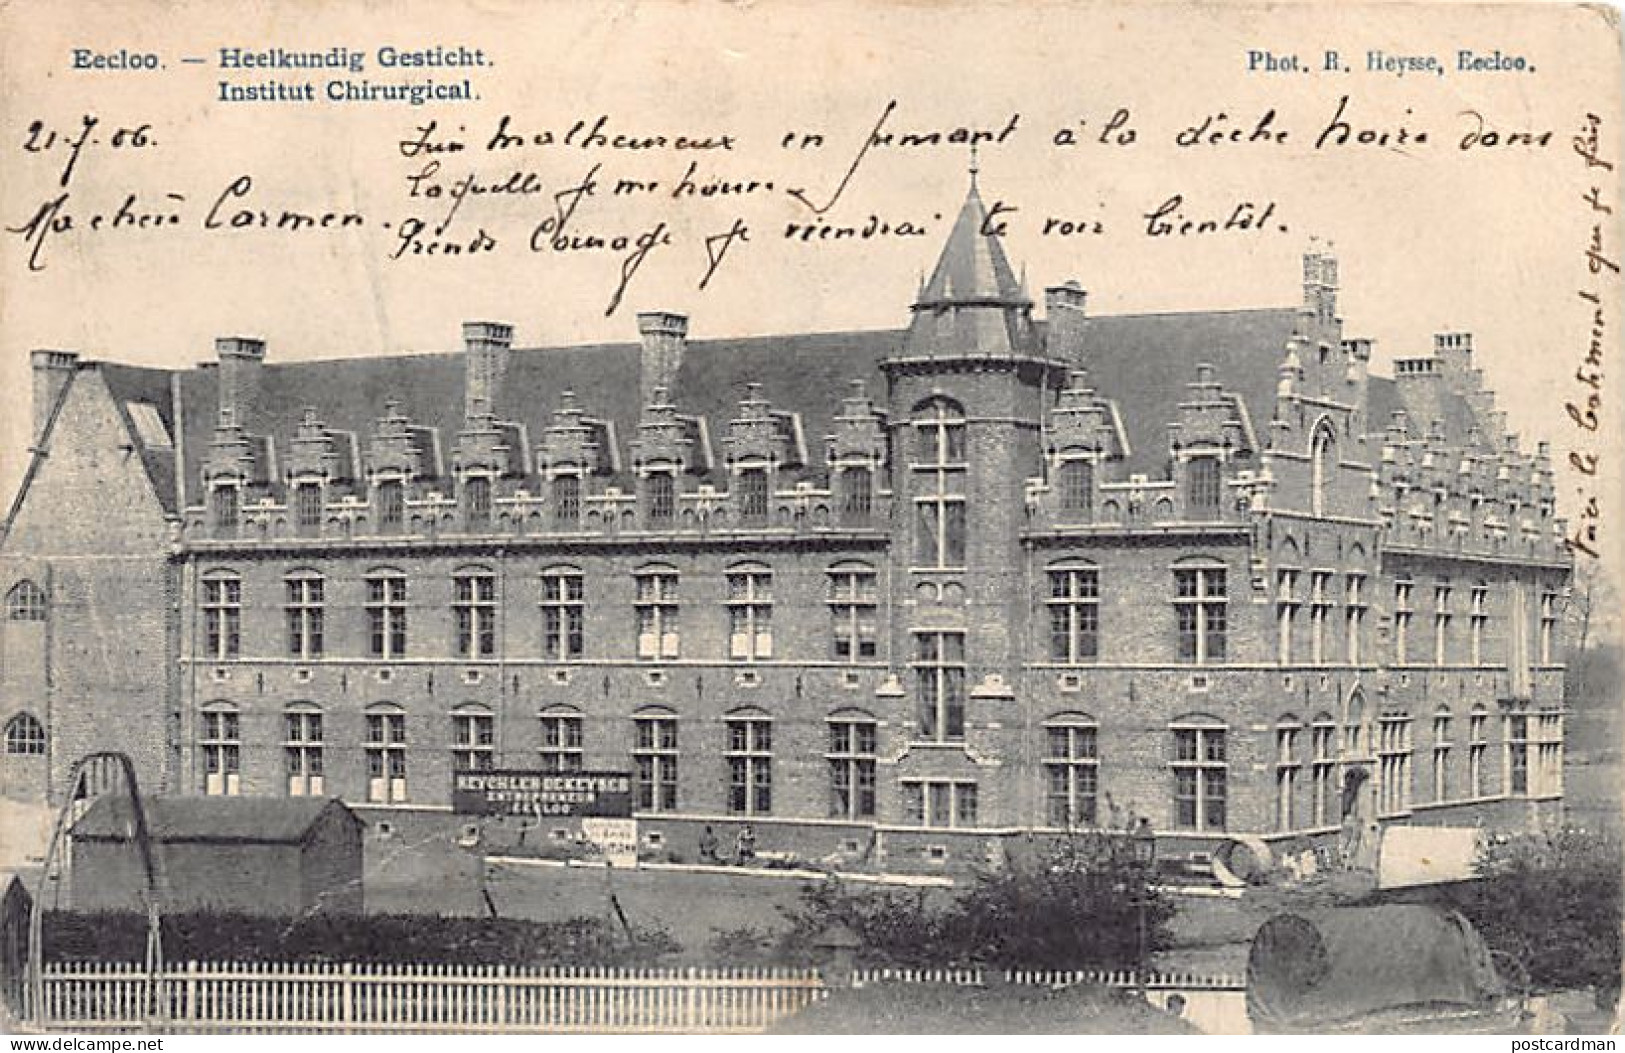 Eecloo. — Heelkundig Gesticht.
Institut Chirurgical.
Phot. R. Heysse, Eecloo.
21-7-06.
Ma chère Carmen.
Suis malheureux en pensant à la dèche noire dans
laquelle je me trouve.
Prends courage je viendrai te voir bientôt.
Voici le batiment que je fais
ENTREPRENEUR
EECLOO
postcardman